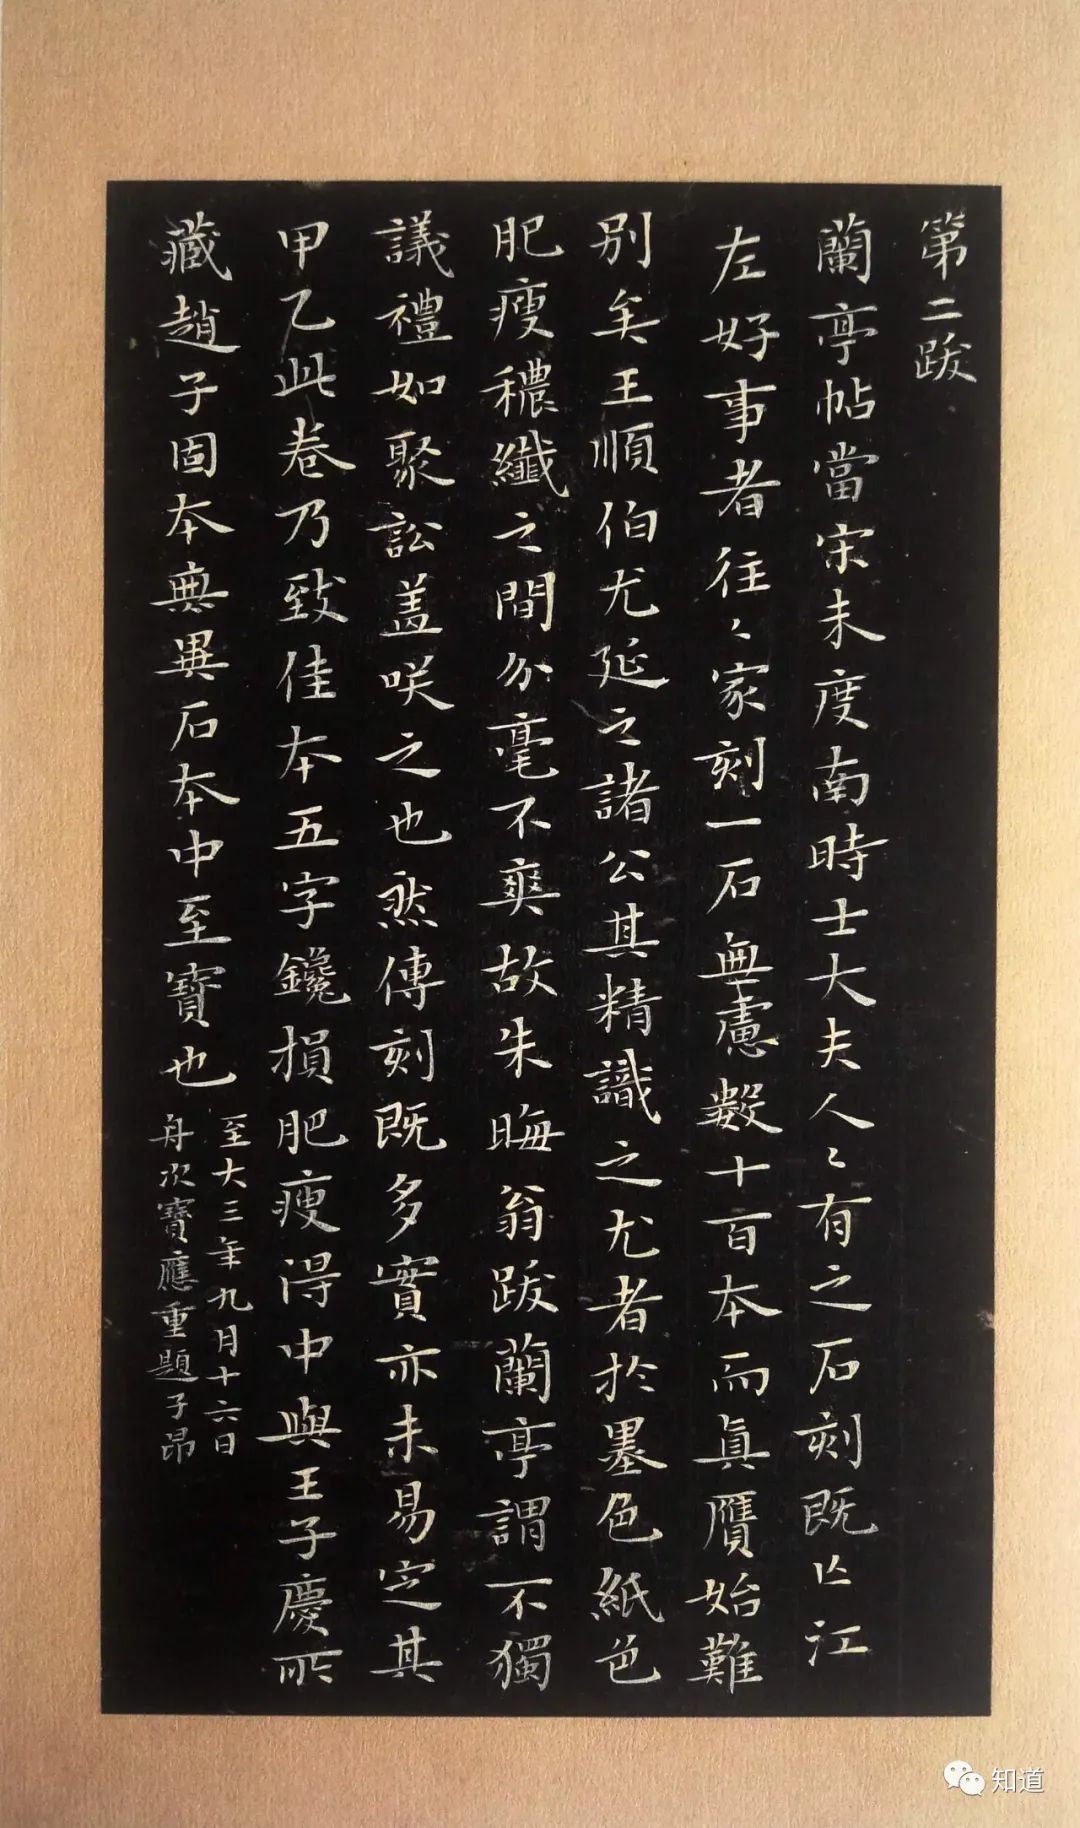 第二跋
蘭亭帖當宋未度南時士大夫人〻有之石刻既亡江
左好事者往〻家刻一石無慮數十百本而真贋始難
别矣王順伯尤延之諸公其精識之尤者於墨色紙色
肥瘦穠纖之間分毫不爽故朱晦翁跋蘭亭謂不獨
議禮如聚訟蓋咲之也然傳刻既多實亦未易定其
甲乙此卷乃致佳本五字鑱損肥瘦得中與王子慶所
藏趙子固本無異石本中至寶也
至大三年九月十六日
舟次寶應重題子昂
知道